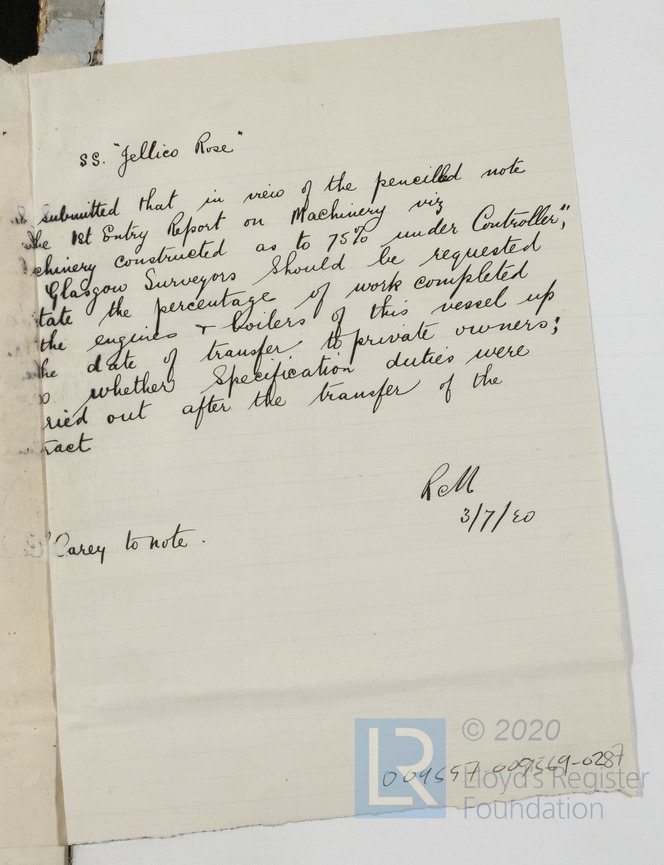 SS. "Jellico Rose"
submitted that in view of the pencilled note
the 1st Entry Report on Machinery viz
chinery constructed as to 75% under Controller";
Glasgow Surveyors should be requested
tate the percentage of work completed
the engines & boilers of this vessel up
he date of transfer to private owners;
o whether Specification duties were
ried out after the transfer of the
tract
RcM
3/7/20
Carey to note.
009557-009569-0287
LR
© 2020
Lloyd's Register
Foundation